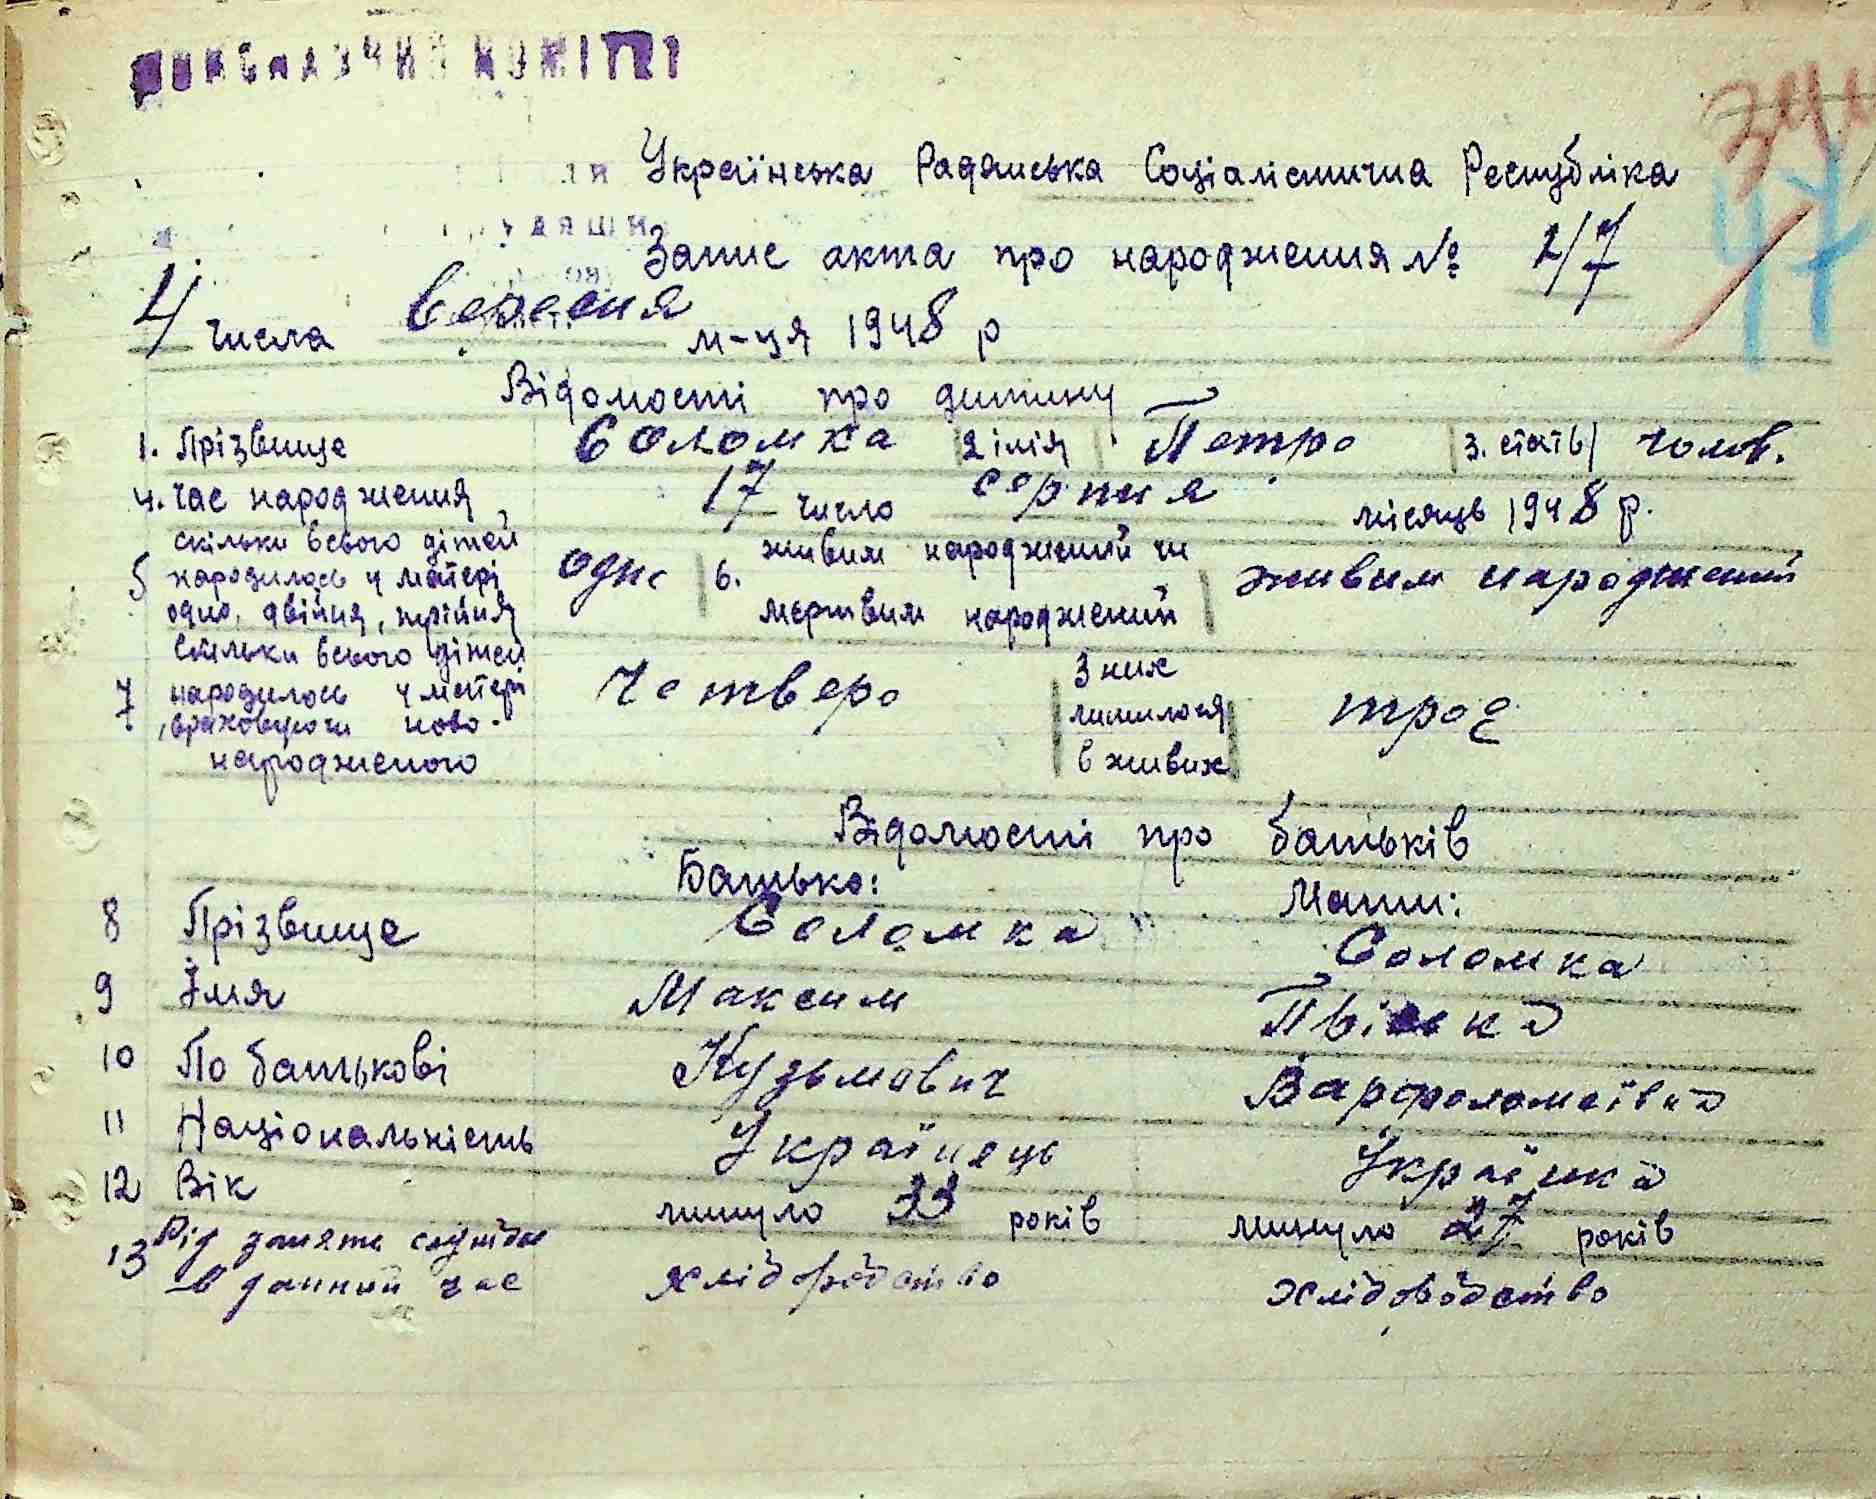 Українська Радянська Соціалістична Республіка
Запис акта про народження № 2/7
4 числа вересня м-ця 1948 р
Відомості про дитину
1. Прізвище Соломка 2 імія Петро 3. стать чолов.
4. Час народження 17 число серпня місяць 1948 р.
5 скільки всього дітей народилось у матері одно, двійня, трійня одне 6. живим народжений чи мертвим народжений живим народжений
7 скільки всього дітей народилось у матері, враховуючи ново-народженого Четверо З них лишилося в живих троє
Відомості про батьків
Батько: Мати:
8 Прізвище Соломка Соломка
9 Імя Максим
10 По батькові Кузьмович Варфоломеївна
11 Національність Українець Українка
12 Вік минуло 33 років минуло 27 років
13 Рід заняття служби в данний час хлібородство